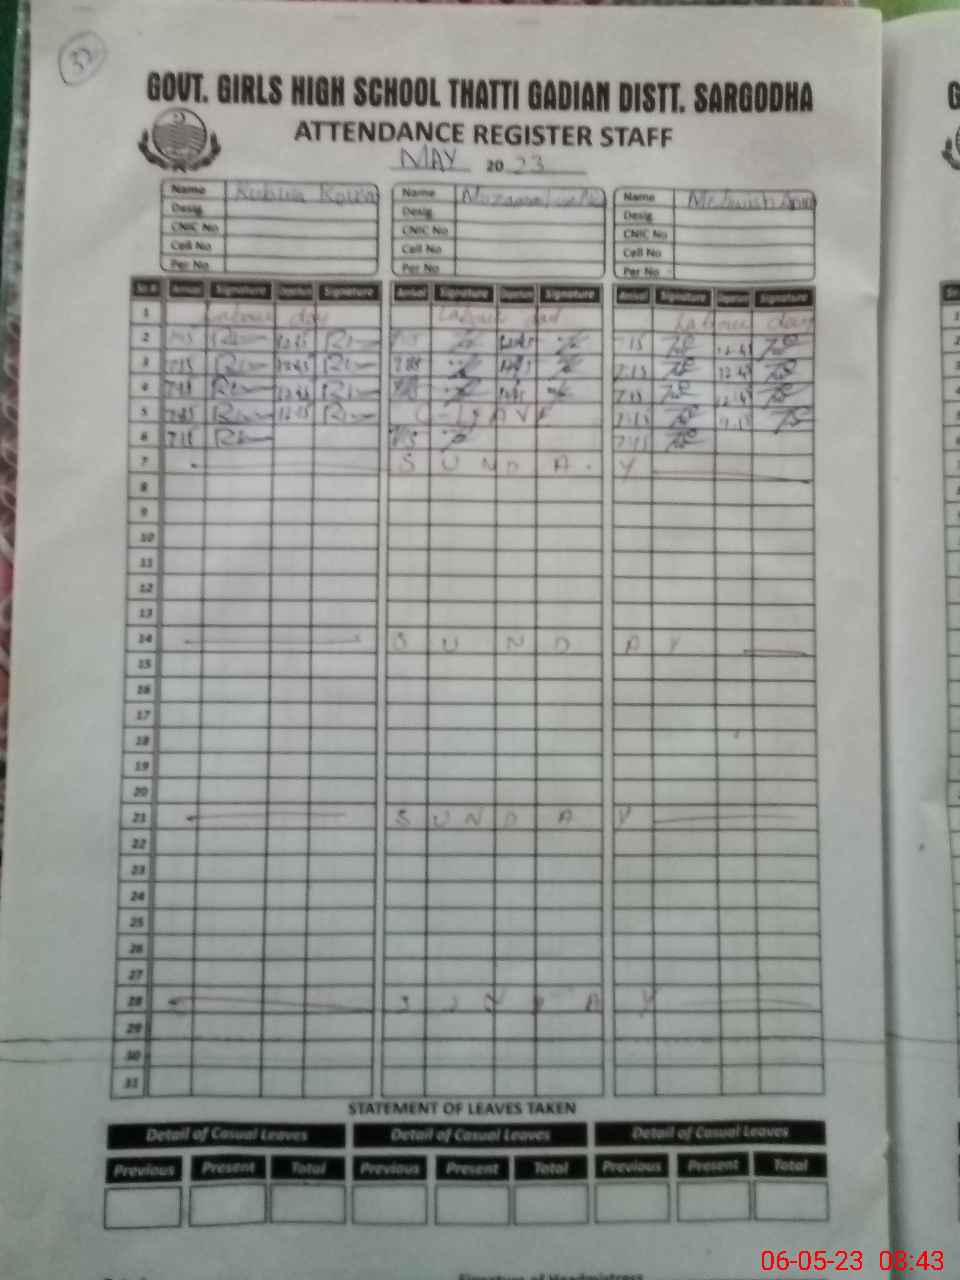 32
GOVT. GIRLS HIGH SCHOOL THATTI GADIAN DISTT. SARGODHA
ATTENDANCE REGISTER STAFF
MAY 2023
Name Name Name
Desig Desig Desig
CNIC No CNIC No CNIC No
Cell No Cell No Cell No
Per No Per No Per No
Sr.# Arrival Signature Departure Signature Arrival Signature Departure Signature Arrival Signature Departure Signature
1 Labour day Labour day Labour day
2 7:15 12:45 7:15 12:45 7:15 12:45
3 7:15 12:45 7:15 7:15 12:45
4 7:15 12:45 7:15 12:45
5 7:15 12:15 LEAVE 7:15
6 7:15 7:15 7:15
7 SUNDAY
8
9
10
11
12
13
14 SUNDAY
15
16
17
18
19
20
21 SUNDAY
22
23
24
25
26
27
28 SUNDAY
29
30
31
STATEMENT OF LEAVES TAKEN
Detail of Casual Leaves Detail of Casual Leaves Detail of Casual Leaves
Previous Present Total Previous Present Total Previous Present Total
Signature of Headmistress
06-05-23 08:43